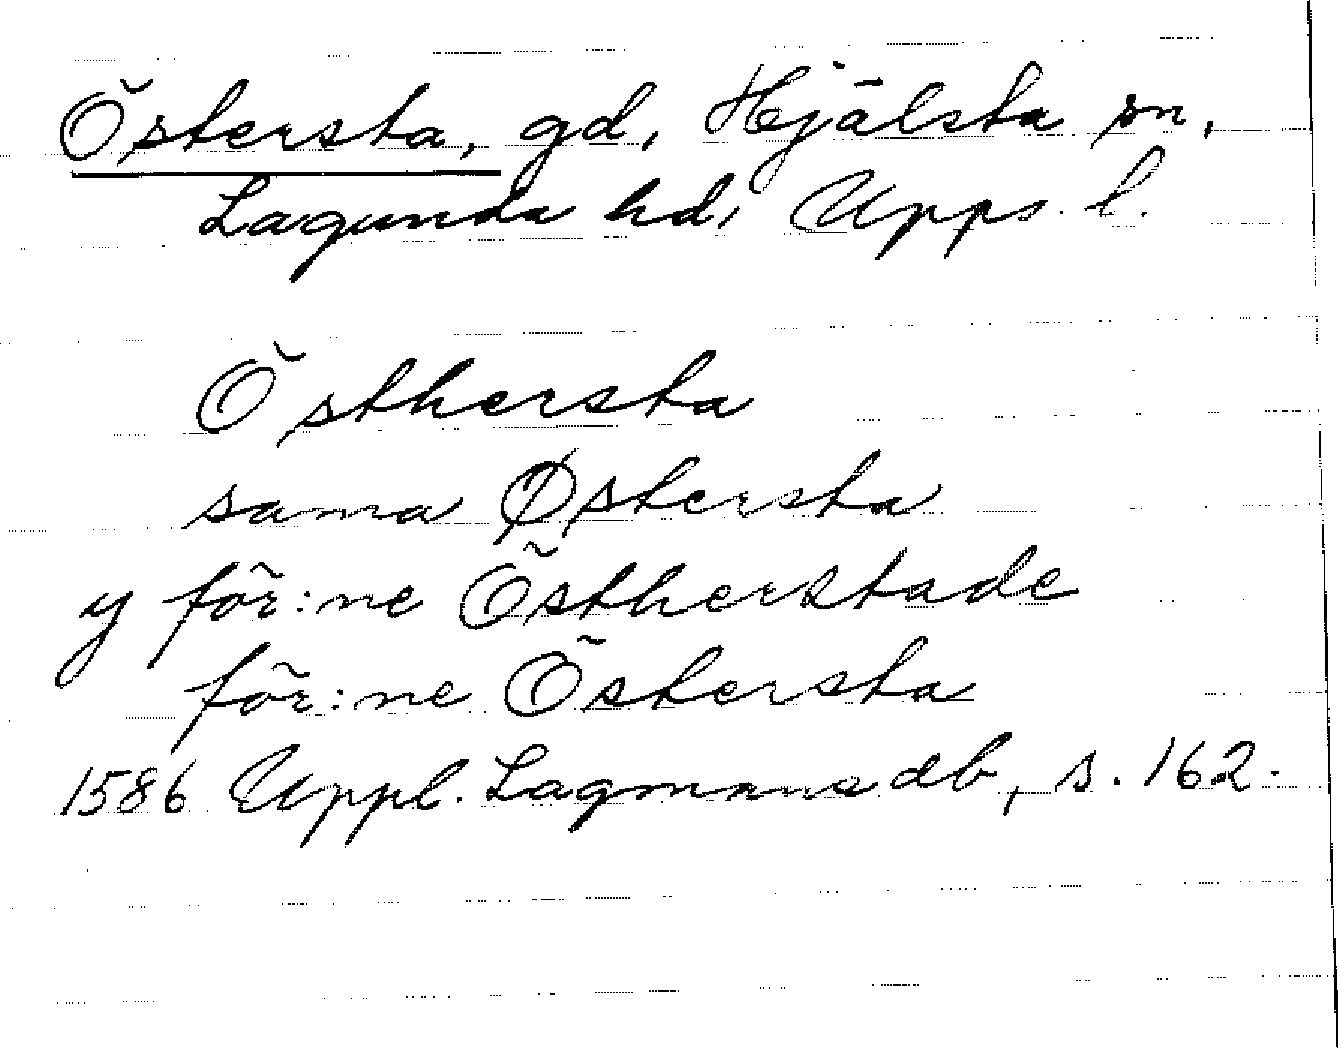 Östersta, gd, Hjälsta sn,
Lagunda hd, Upps. l.
Östhersta
sama Østersta
y för:ne Östherstade
för:ne Östersta
1586 Uppl. Lagmans db, s. 162.